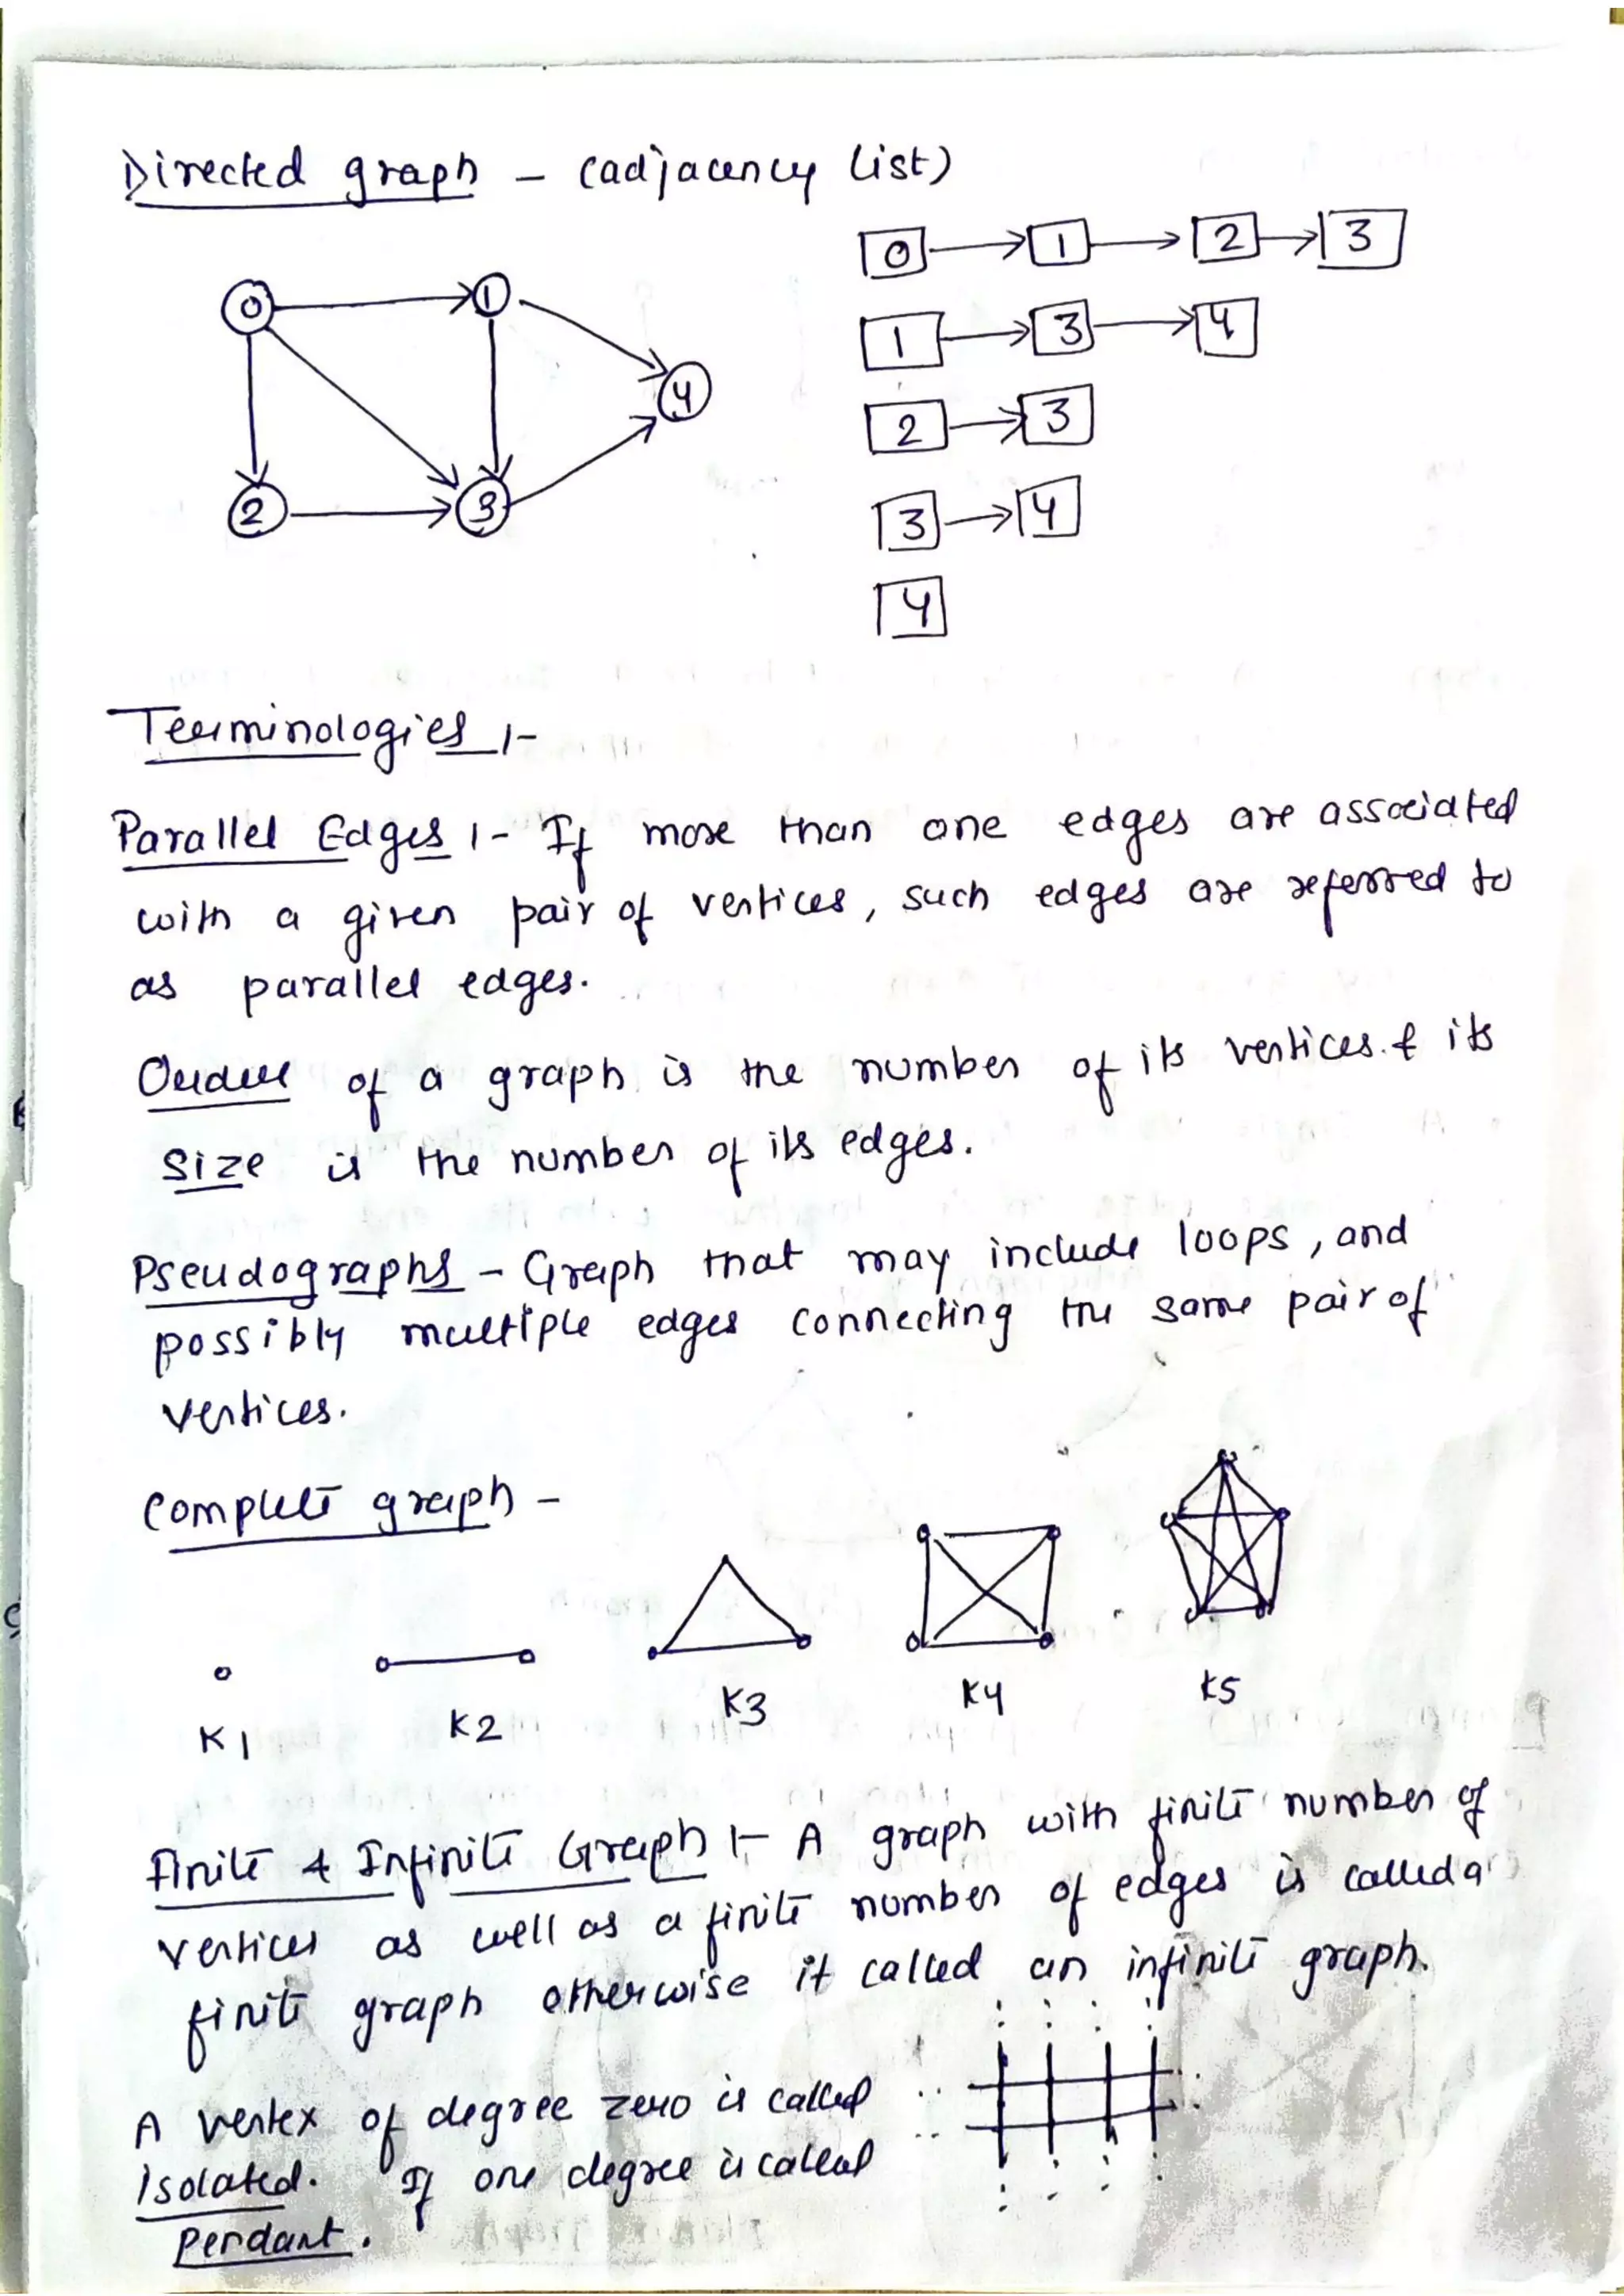 Directed graph - (adjacency list)
0 1 2 3
1 3 4
2 3
3 4
4
0 1
4
2 3
Terminologies :-
Parallel Edges :- If more than one edges are associated
with a given pair of vertices, such edges are referred to
as parallel edges.
Order of a graph is the number of its vertices. & its
size is the number of its edges.
Pseudographs - Graph that may include loops, and
possibly multiple edges connecting the same pair of
vertices.
Complete graph -
K1 K2 K3 K4 K5
Finite & Infinite Graph :- A graph with finite number of
vertices as well as a finite number of edges is called a
finite graph otherwise it called an infinite graph.
A vertex of degree zero is called
isolated. If one degree is called
Pendant.